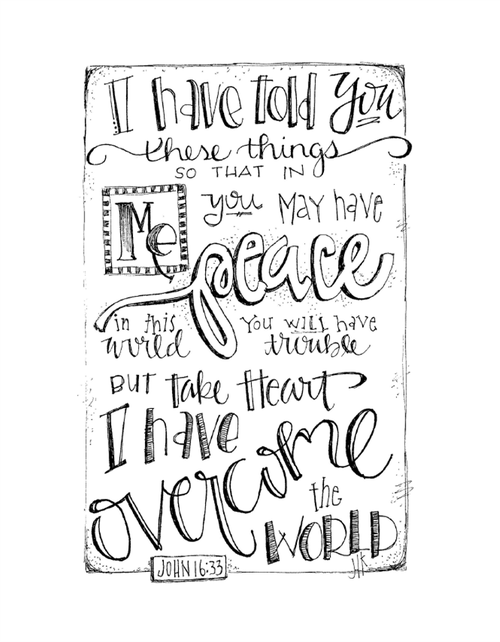 I have told you
these things
SO THAT IN
Me you MAY have
peace
in this You will have
world trouble
BUT take Heart
I have
overcome
the
WORLD
JOHN 16:33
JHK